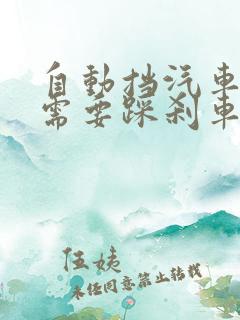 自動挡汽車
需要踩刹車
伍姨
未任同意禁止转载